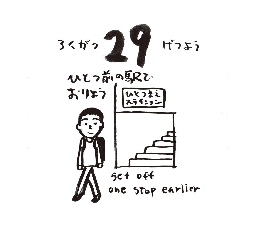 ろくがつ 29 げつよう
ひとつ前の駅で
おりよう
ひとつまえ
ステイション
get off
one stop earlier